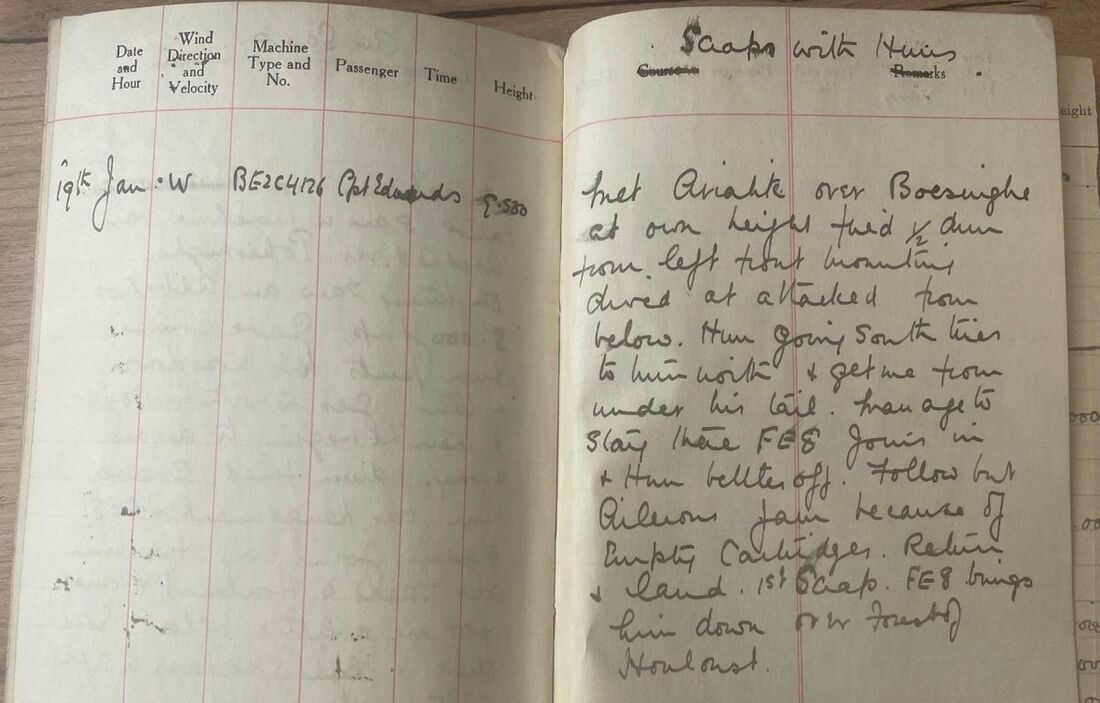 Date and Hour
Wind Direction and Velocity
Machine Type and No.
Passenger
Time
Height
19th Jan. W BE2C4126 Cpt Edwards 9.500
Scaps with Huns
Course
Remarks
Met Aviatik over Boesinghe
at own height fired 1/2 drum
from left front mounting
dived at attacked from
below. Hun going South tries
to turn north & get me from
under his tail. Manage to
Stay there FE8 Joins in
& Hun beltes off. Follow but
Ailerons Jam because of
Empty Cartridges. Return
& land. 1st Scap. FE8 brings
him down over Forest of
Houloust.
eight